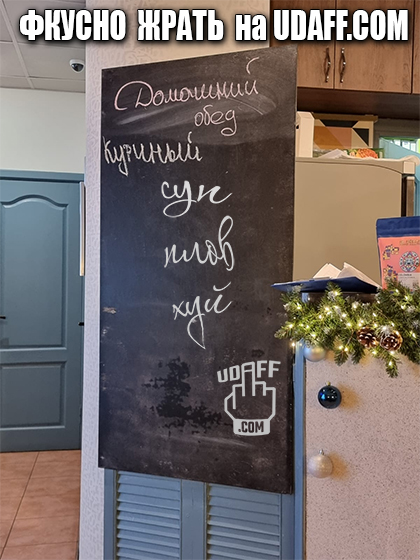 ФКУСНО ЖРАТЬ на UDAFF.COM
Домашний
обед
Куриный
суп
плов
хуй
UDAFF
.COM